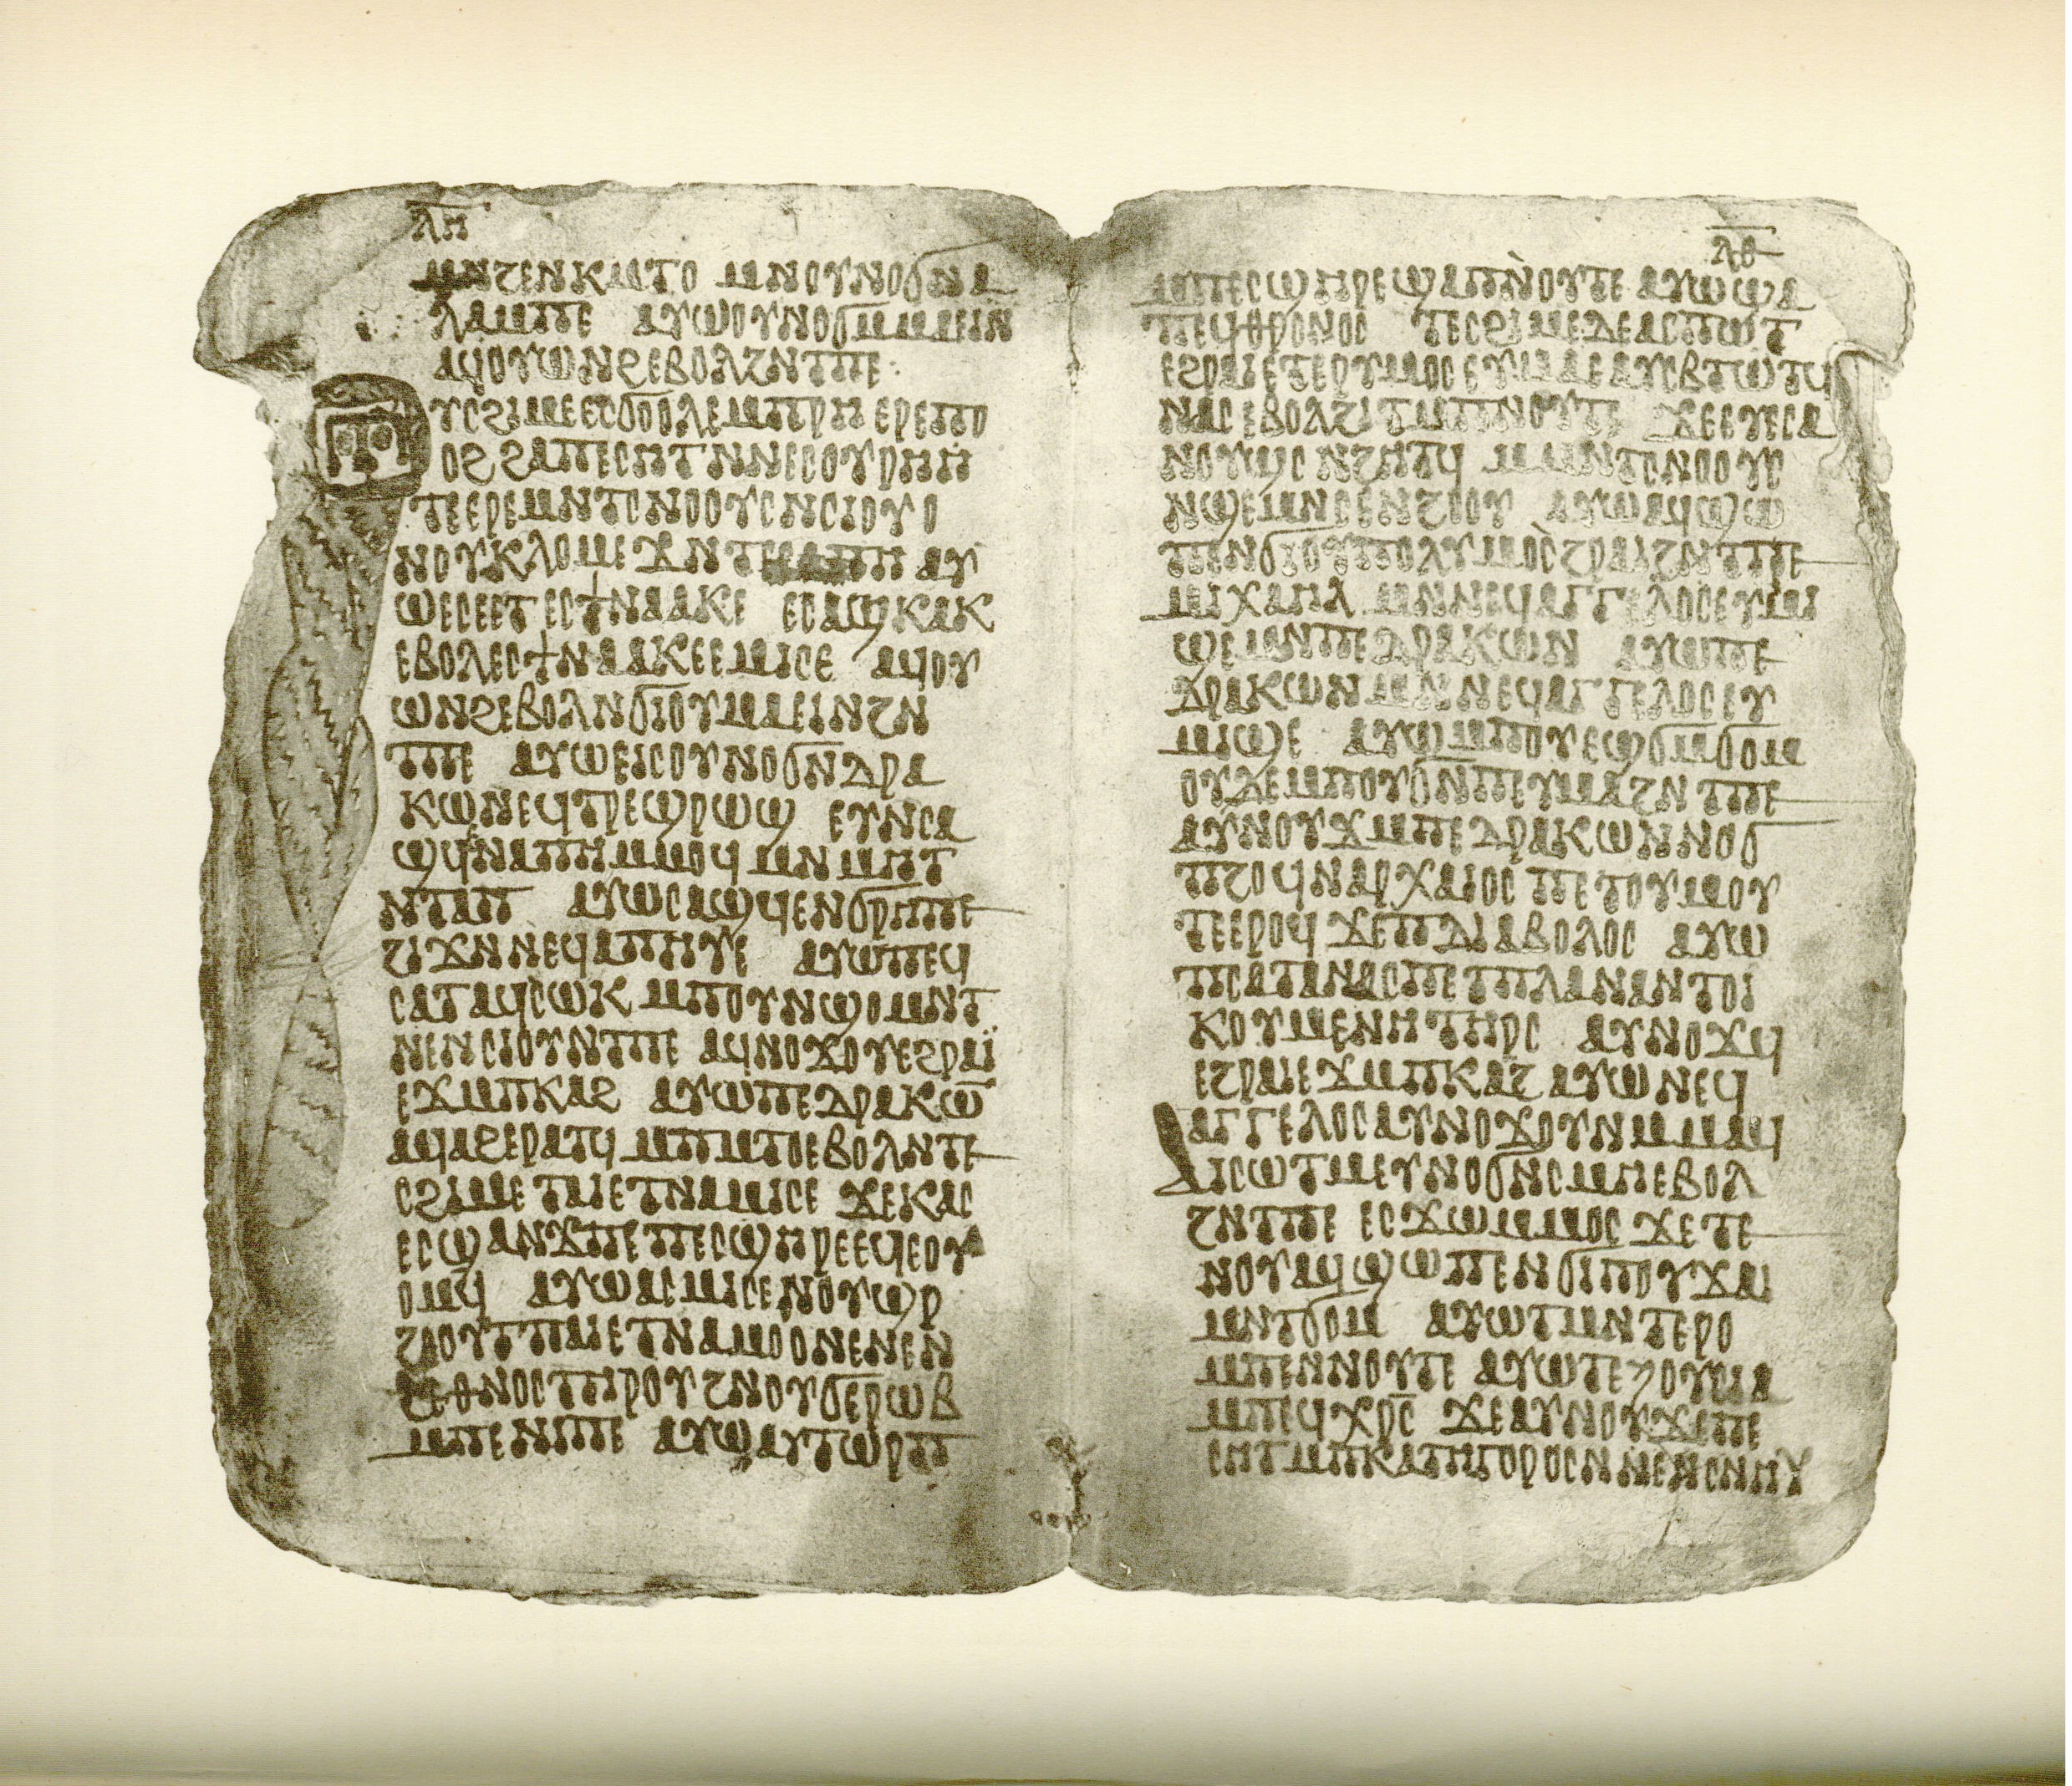 ⲗⲏ
ⲙⲛϩⲉⲛⲕⲙⲧⲟ ⲙⲛⲟⲩⲛⲟϭⲛⲁ
ⲗⲁⲙⲡⲉ ⲁⲩⲱⲟⲩⲛⲟϭⲙⲙⲁⲉⲓⲛ
ⲁϥⲟⲩⲱⲛϩⲉⲃⲟⲗϩⲛⲧⲡⲉ
ⲟⲩⲥϩⲓⲙⲉⲉⲥϭⲟⲟⲗⲉⲙⲡⲣⲏ ⲉⲣⲉⲡⲟ
ⲟϩ ϩⲁⲡⲉⲥⲏⲧⲛⲛⲉⲥⲟⲩⲣⲏⲏ
ⲧⲉⲉⲣⲉⲙⲛⲧⲥⲛⲟⲟⲩⲥⲛⲥⲓⲟⲩ ⲟ
ⲛⲟⲩⲕⲗⲟⲙⲉϫⲛⲧⲉⲥⲁⲡⲏ ⲁⲩ
ⲱⲉⲥⲉⲉⲧ ⲉⲥϯⲛⲁⲁⲕⲉ ⲉⲥⲁϣⲕⲁⲕ
ⲉⲃⲟⲗⲉⲥϯⲛⲁⲁⲕⲉⲉⲙⲓⲥⲉ ⲁϥⲟⲩ
ⲱⲛϩⲉⲃⲟⲗⲛϭⲓⲟⲩⲙⲁⲉⲓⲛϩⲛ
ⲧⲡⲉ ⲁⲩⲱⲉⲓⲥⲟⲩⲛⲟϭⲛⲇⲣⲁ
ⲕⲱⲛⲉϥⲧⲣⲉϣⲣⲱϣ ⲉⲩⲛⲥⲁ
ϣϥⲛⲁⲡⲏⲙⲙⲟϥ ⲙⲛⲙⲏⲧ
ⲛⲧⲁⲡ ⲁⲩⲱⲥⲁϣϥⲉⲛϭⲣⲏⲡⲉ
ϩⲓϫⲛⲛⲉϥⲁⲡⲏⲩⲉ ⲁⲩⲱⲡⲉϥ
ⲥⲁⲧ ⲁϥⲥⲱⲕ ⲙⲡⲟⲩⲛϣⲟⲙⲛⲧ
ⲛⲉⲛⲥⲓⲟⲩⲛⲧⲡⲉ ⲁϥⲛⲟϫⲟⲩⲉϩⲣⲁⲓ̈
ⲉϫⲙⲡⲕⲁϩ ⲁⲩⲱⲡⲉⲇⲣⲁⲕⲱ̅
ⲁϥⲁϩⲉⲣⲁⲧϥ ⲙⲡⲙⲧⲟⲉⲃⲟⲗⲛⲧⲉ
ⲥϩⲓⲙⲉ ⲧⲁⲓⲉⲧⲛⲁⲙⲓⲥⲉ ϫⲉⲕⲁⲥ
ⲉⲥϣⲁⲛϫⲡⲉⲡⲉⲥϣⲏⲣⲉⲉϥⲉⲟⲩ
ⲟⲙϥ ⲁⲩⲱⲁⲥⲙⲓⲥⲉⲛⲟⲩϣⲣ
ϩⲟⲟⲩⲧ ⲡⲁⲓⲉⲧⲛⲁⲙⲟⲟⲛⲉⲛⲉⲛ
ϩⲉⲑⲛⲟⲥⲧⲏⲣⲟⲩϩⲛⲟⲩϭⲉⲣⲱⲃ
ⲙⲡⲉⲛⲓⲡⲉ ⲁⲩⲱⲁⲩⲧⲱⲣⲡ
ⲗⲑ
ⲙⲡⲉⲥϣⲏⲣⲉϣⲁⲡⲛⲟⲩⲧⲉ ⲁⲩⲱϣⲁ
ⲡⲉϥⲑⲣⲟⲛⲟⲥ ⲧⲉⲥϩⲓⲙⲉⲇⲉⲁⲥⲡⲱⲧ
ⲉϩⲣⲁⲓⲉⲧⲉⲣⲩⲙⲟⲥⲉⲩⲙⲁⲉⲁⲩⲥⲃⲧⲱⲧϥ
ⲛⲁⲥⲉⲃⲟⲗϩⲓⲧⲙⲡⲛⲟⲩⲧⲉ ϫⲉⲉⲩⲉⲥⲁ
ⲛⲟⲩϣⲥ ⲛϩⲏⲧϥ ⲙⲙⲛⲧⲥⲛⲟⲟⲩⲥ
ⲛϣⲉⲙⲛⲥⲉⲛϩⲟⲟⲩ ⲁⲩⲱⲁϥϣⲱ
ⲡⲉⲛϭⲓⲟⲩⲡⲟⲗⲩⲙⲟⲥϩⲣⲁⲓϩⲛⲧⲡⲉ
ⲙⲓⲭⲁⲏⲗ ⲙⲛⲛⲉϥⲁⲅⲅⲉⲗⲟⲥⲉⲩⲙⲓ
ϣⲉⲙⲛⲡⲉⲇⲣⲁⲕⲱⲛ ⲁⲩⲱⲡⲉ
ⲇⲣⲁⲕⲱⲛⲙⲛⲛⲉϥⲁⲅⲅⲉⲗⲟⲥⲉⲩ
ⲙⲓϣⲉ ⲁⲩⲱⲙⲡⲟⲩⲉϣϭⲙϭⲟⲙ
ⲟⲩⲇⲉⲙⲡⲟⲩϭⲛⲡⲉⲩⲙⲁϩⲛ ⲧⲡⲉ
ⲁⲩⲛⲟⲩϫⲙⲡⲉⲇⲣⲁⲕⲱⲛⲛⲟϭ
ⲡϩⲟϥⲛⲁⲣⲭⲁⲓⲟⲥ ⲡⲉⲧⲟⲩⲙⲟⲩ
ⲧⲉⲉⲣⲟϥ ϫⲉⲡⲇⲓⲁⲃⲟⲗⲟⲥ ⲁⲩⲱ
ⲡⲥⲁⲧⲁⲛⲁⲥⲡⲉⲧⲡⲗⲁⲛⲁⲛⲧⲟⲓ
ⲕⲟⲩⲙⲉⲛⲏⲧⲏⲣⲥ ⲁⲩⲛⲟϫϥ
ⲉϩⲣⲁⲓⲉϫⲙⲡⲕⲁϩ ⲁⲩⲱⲛⲉϥ
ⲁⲅⲅⲉⲗⲟⲥⲁⲩⲛⲟϫⲟⲩⲛⲙⲙⲁϥ
ⲁⲓⲥⲱⲧⲙⲉⲩⲛⲟϭⲛⲥⲙⲏⲉⲃⲟⲗ
ϩⲛⲧⲡⲉ ⲉⲥϫⲱⲙⲙⲟⲥ ϫⲉ ⲧⲉ
ⲛⲟⲩⲁϥϣⲱⲡⲉⲛϭⲓⲡⲟⲩϫⲁⲓ
ⲙⲛⲧϭⲟⲙ ⲁⲩⲱⲧⲙⲛⲧⲉⲣⲟ
ⲙⲡⲉⲛⲛⲟⲩⲧⲉ ⲁⲩⲱⲧⲉϩⲟⲩⲥⲓⲁ
ⲙⲡⲉϥⲭⲣ̅ⲥ̅ ϫⲉⲁⲩⲛⲟⲩϫⲉⲡⲉ
ⲥⲏⲧ ⲙⲡⲕⲁⲧⲏⲅⲟⲣⲟⲥⲛⲛⲉⲛⲥⲛⲏⲩ